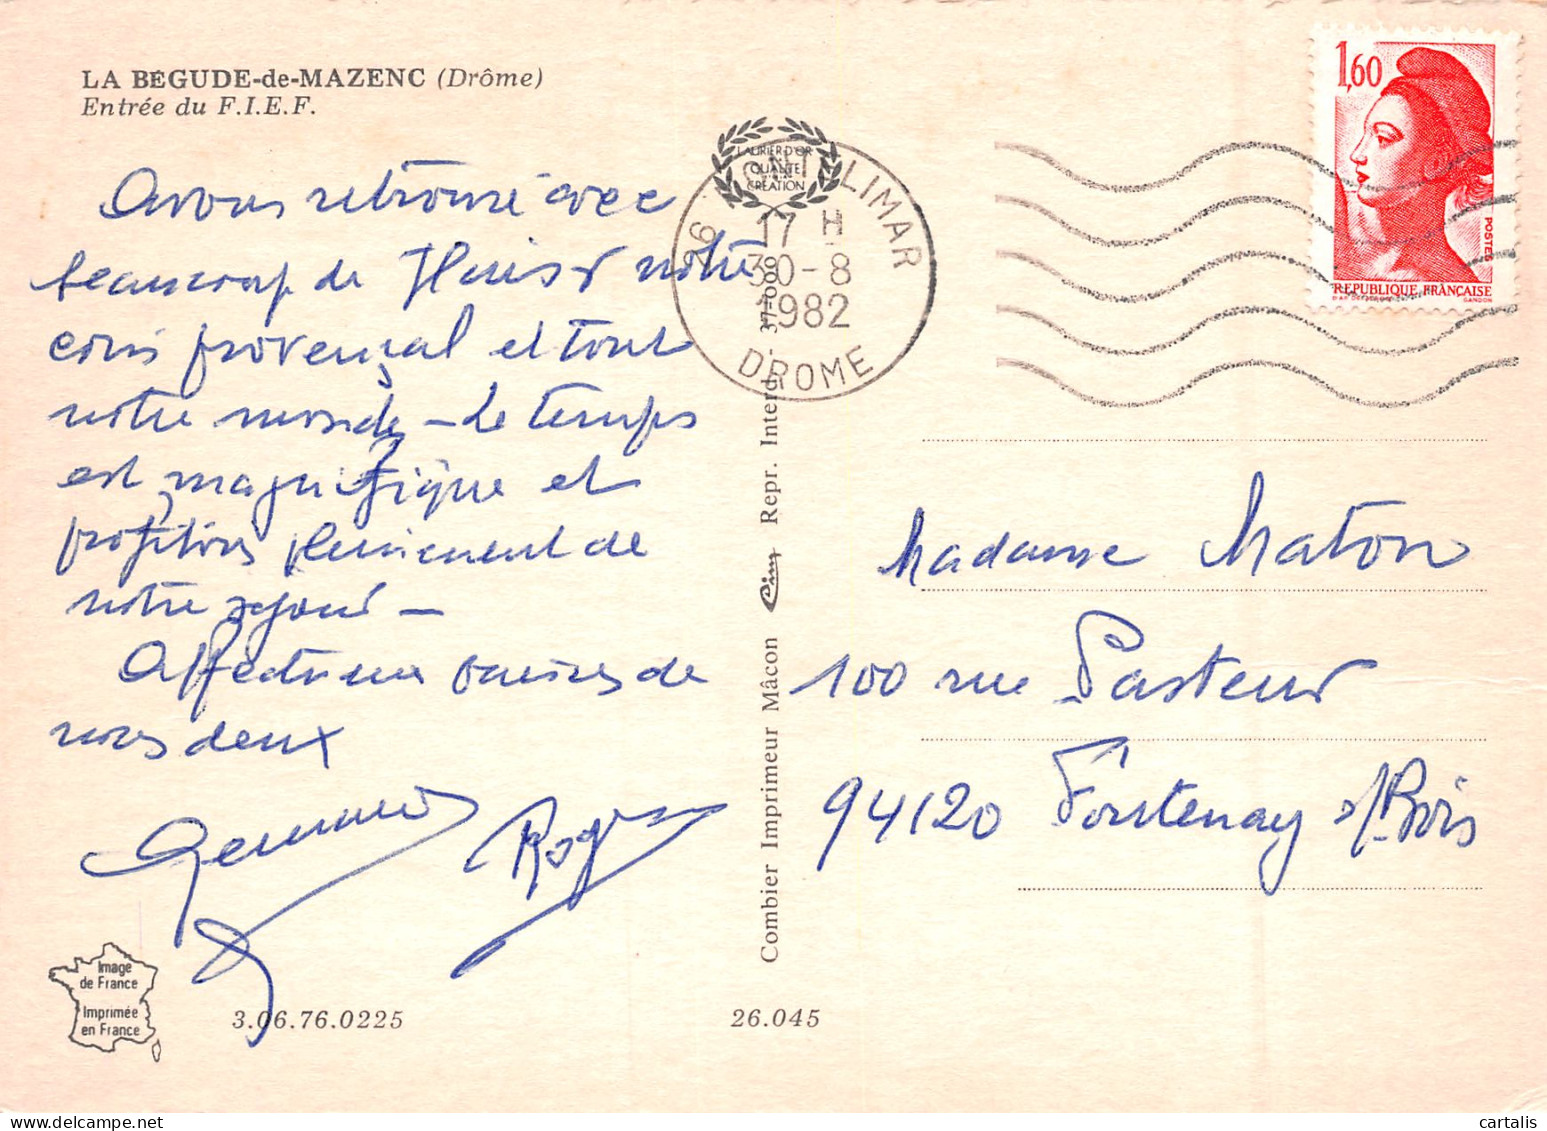 LA BÉGUDE-de-MAZENC (Drôme)
Entrée du F.I.E.F.
Avons retrouvé avec
beaucoup de plaisir notre
coin provençal et tout
notre monde – Le temps
est magnifique et
profitons pleinement de
notre séjour –
Affectueux baisers de
nous deux
Roger
Image
de France
Imprimée
en France
3.06.76.0225
26.045
Combier Imprimeur Mâcon Cim Repr. Interd. - 37-000
LAURIER D'OR
QUALITÉ
CRÉATION
26 LIMAR
17 H
30-8
1982
DROME
1,60
POSTES
REPUBLIQUE FRANÇAISE
GANDON
Madame Maton
100 rue Pasteur
94120 Fontenay s/Bois
cartalis